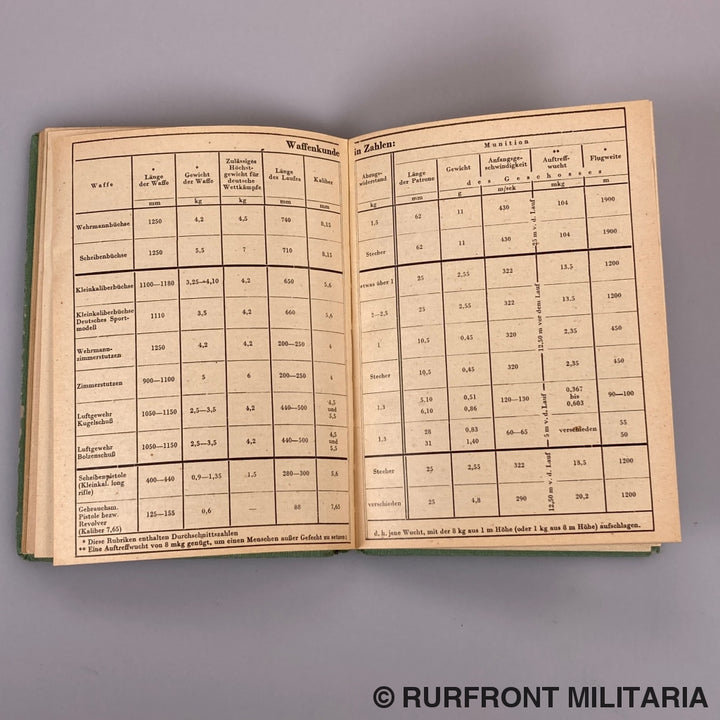 Waffenkunde in Zahlen:
Waffe
Länge
der Waffe
mm
*
Gewicht
der Waffe
kg
Zulässiges
Höchst-
gewicht für
deutsche
Wettkämpfe
kg
Länge
des Laufes
mm
Kaliber
mm
Abzugs-
widerstand
kg
Munition
Länge
der Patrone
mm
Gewicht
g
Anfangsge-
schwindigkeit
m/sek
**
Auftreff-
wucht
mkg
*
Flugweite
m
des Geschosses
Wehrmannbüchse 1250 4,2 4,5 740 8,15 1,5 62 11 430 104 1900
Scheibenbüchse 1250 5,5 7 710 8,15 Stecher 62 11 430 104 1900
25 m v. d. Lauf
Kleinkaliberbüchse 1100—1180 3,25—4,10 4,2 650 5,6 etwas über 1 25 2,55 322 13,5 1200
Kleinkaliberbüchse
Deutsches Sport-
modell
1110 3,5 4,2 660 5,6 2—2,5 25 2,55 322 13,5 1200
Wehrmann-
zimmerstutzen
1250 4,2 4,2 200—250 4 1 10,5 0,45 320 2,35 450
Zimmerstutzen 900—1100 5 6 200—250 4 Stecher 10,5 0,45 320 2,35 450
12,50 m vor dem Lauf
Luftgewehr
Kugelschuß
1050—1150 2,5—3,5 4,2 440—500 4,5
und
5,5
1,3 5,10 0,51 120—130 0,367 90—100
6,10 0,86 bis
0,603
Luftgewehr
Bolzenschuß
1050—1150 2,5—3,5 4,2 440—500 4,5
und
5,5
1,3 28 0,83 60—65 verschieden 55
31 1,40 50
5 m v. d. Lauf
Scheibenpistole
(Kleinkal. long
rifle)
400—440 0,9—1,35 1,5 280—300 5,6 Stecher 25 2,55 322 18,5 1200
Gebrauchsm.
Pistole bezw.
Revolver
(Kaliber 7,65)
125—155 0,6 — 88 7,65 verschieden 25 4,8 290 20,2 1200
12,50 m v. d. Lauf
* Diese Rubriken enthalten Durchschnittszahlen
** Eine Auftreffwucht von 8 mkg genügt, um einen Menschen außer Gefecht zu setzen;
d. h. jene Wucht, mit der 8 kg aus 1 m Höhe (oder 1 kg aus 8 m Höhe) aufschlagen.
© RURFRONT MILITARIA